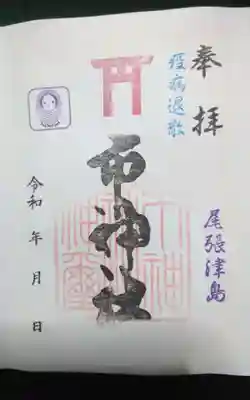 奉拝
疫病退散
市神社
尾張津島
令和 年 月 日